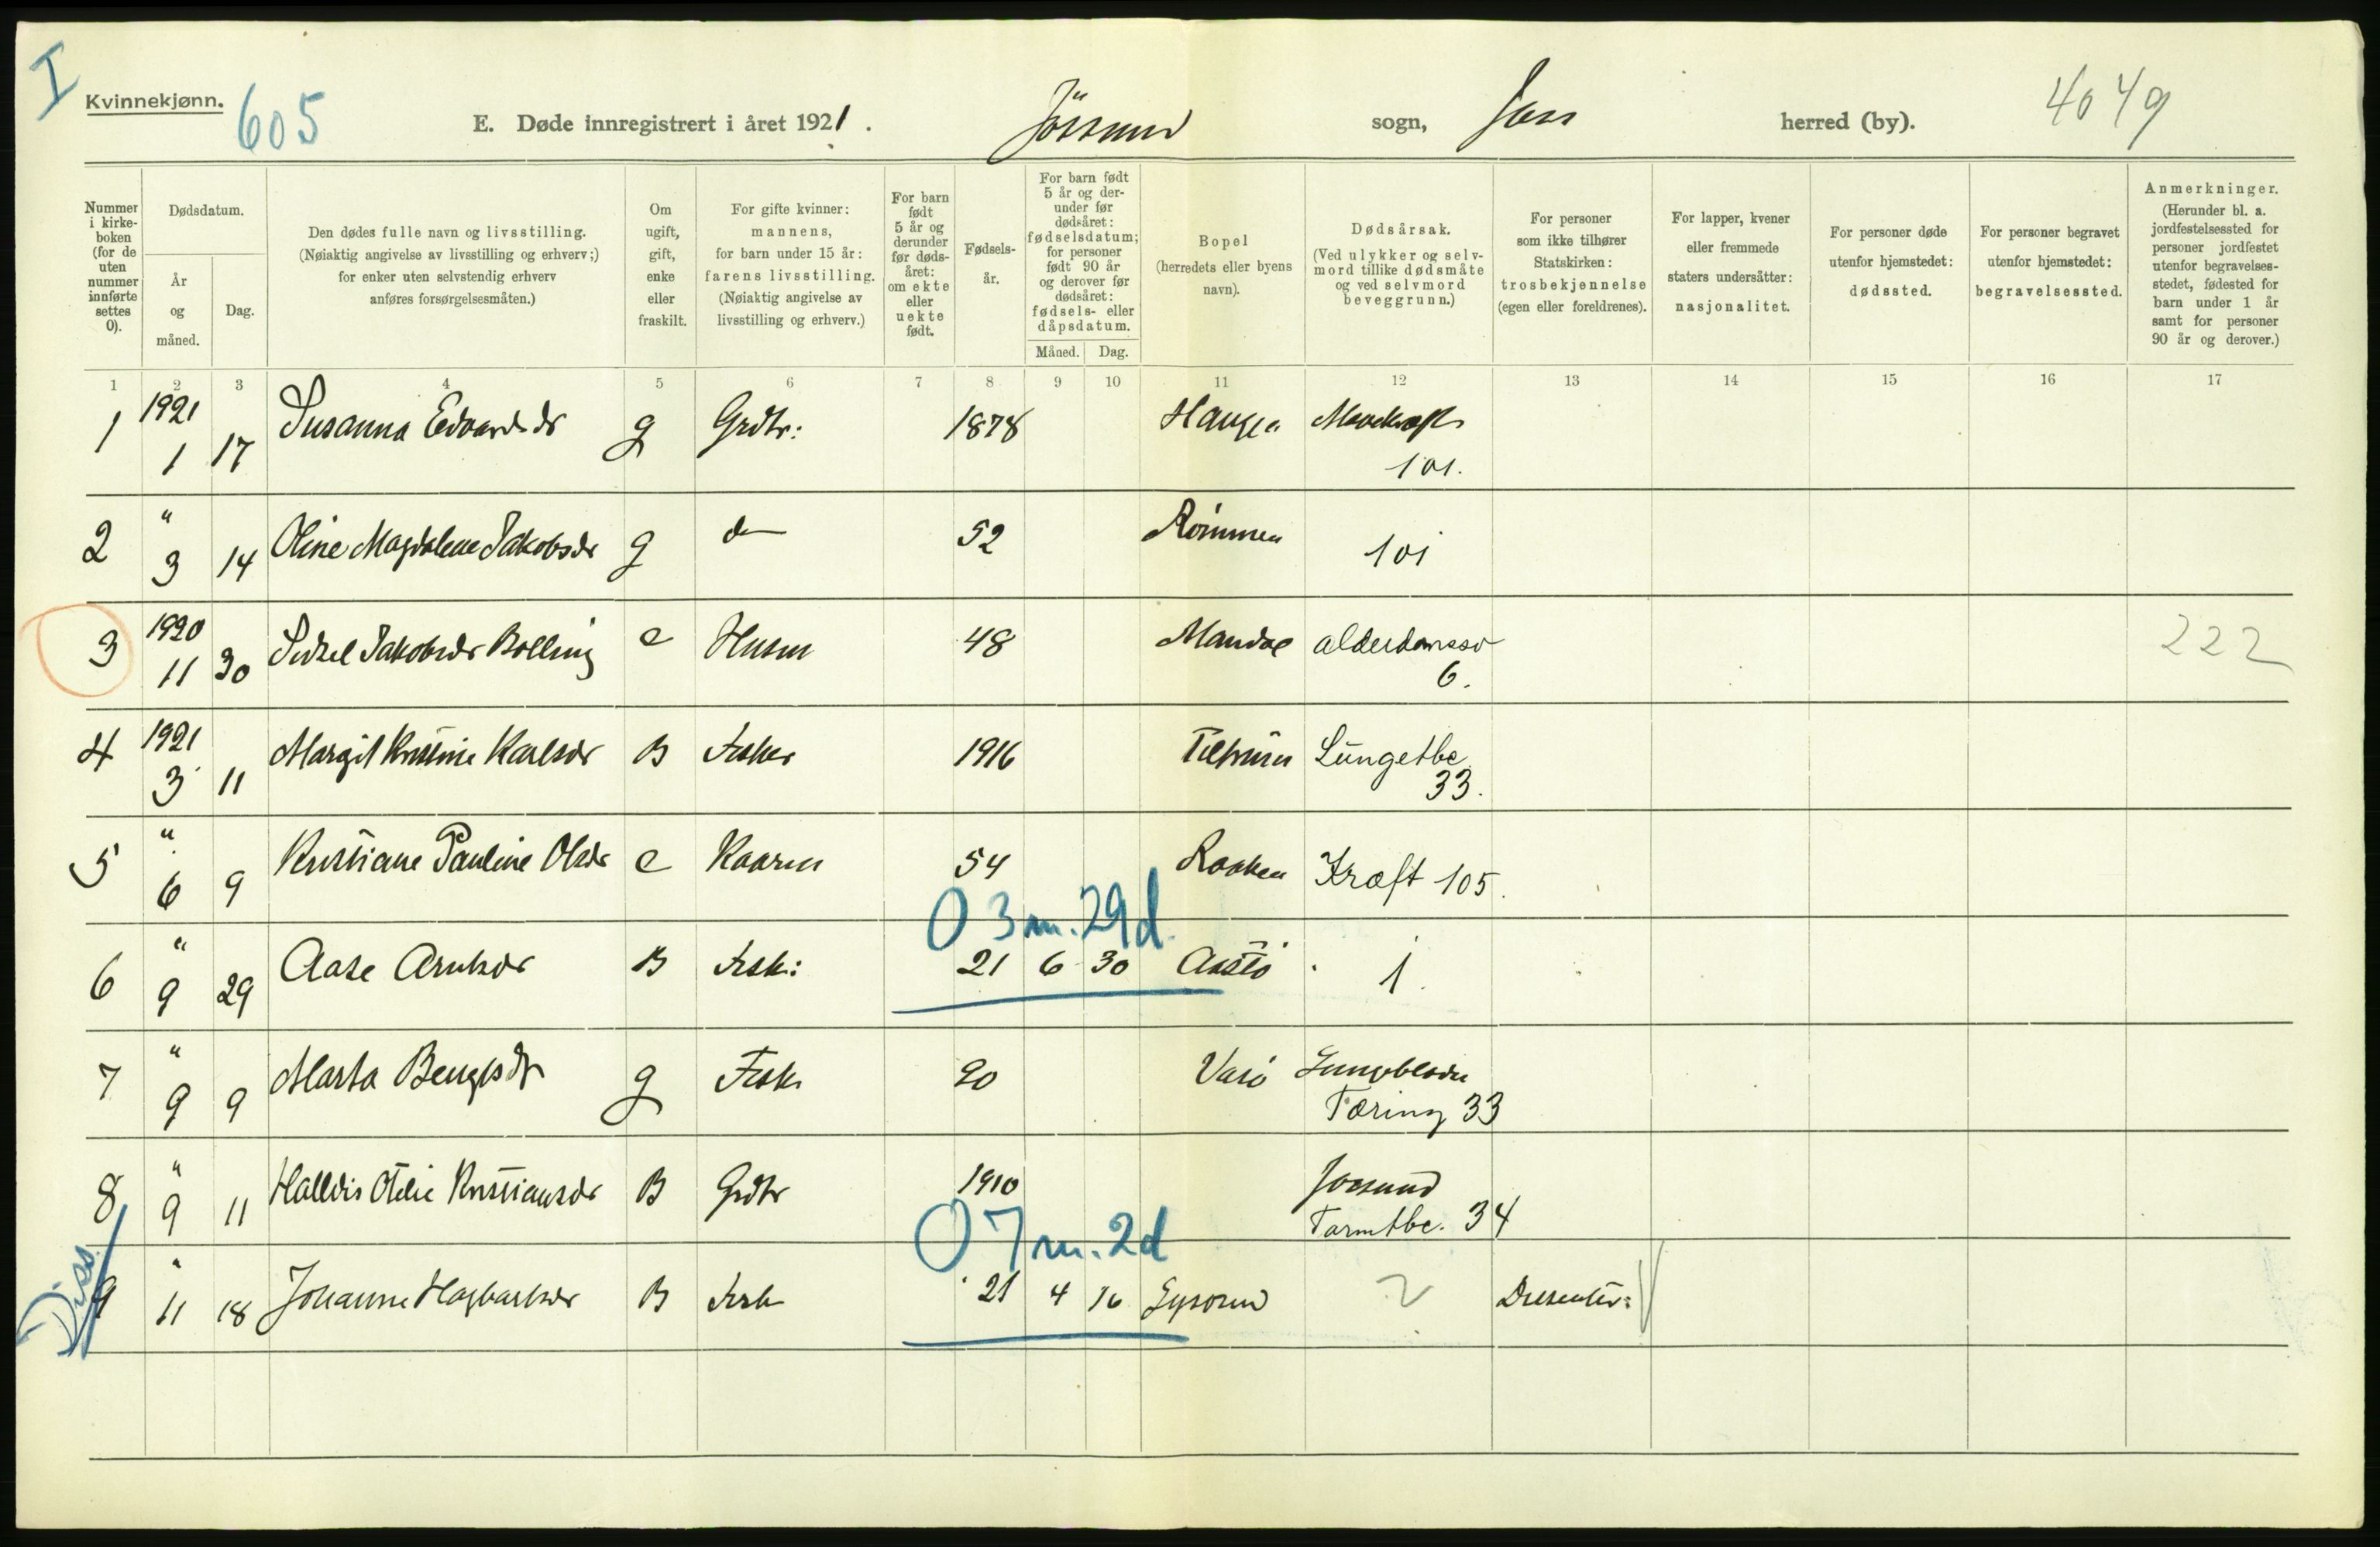 I
Kvinnekjønn.
605
E. Døde innregistrert i året 1921.
Jössund
sogn,
herred (by).
4049
Nummer i kirke-boken (for de uten nummer innførte settes 0).
Dødsdatum.
År og måned.
Dag.
Den dødes fulle navn og livsstilling.
(Nøiaktig angivelse av livsstilling og erhverv;)
for enker uten selvstendig erhverv
anføres forsørgelsesmåten.)
Om ugift, gift, enke eller fraskilt.
For gifte kvinner:
mannens,
for barn under 15 år:
farens livsstilling.
(Nøiaktig angivelse av
livsstilling og erhverv.)
For barn født 5 år og derunder før døds-året: om ekte eller uekte født.
Fødsels-år.
For barn født 5 år og der-under før dødsåret: fødselsdatum; for personer født 90 år og derover før dødsåret: fødsels- eller dåpsdatum.
Måned.
Dag.
Bopel
(herredets eller byens navn).
Dødsårsak.
(Ved ulykker og selv-mord tillike dødsmåte og ved selvmord beveggrunn.)
For personer
som ikke tilhører
Statskirken:
trosbekjennelse
(egen eller foreldrenes).
For lapper, kvener
eller fremmede
staters undersåtter:
nasjonalitet.
For personer døde
utenfor hjemstedet:
dødssted.
For personer begravet
utenfor hjemstedet:
begravelsessted.
Anmerkninger.
(Herunder bl. a. jordfestelsessted for personer jordfestet utenfor begravelses-stedet, fødested for barn under 1 år samt for personer 90 år og derover.)
1 2 3 4 5 6 7 8 9 10 11 12 13 14 15 16 17
1 1921 1 17 Susanna Edvardsdr g Grdbr: 1878 Haugen 101.
2 " 3 14 Oline Magdalene Jakobsdr g do 52 101
3 1920 11 30 Sidsel Jakobsdr Bolling e Husm 48 Mandal 6. 222
4 1921 3 11 Margit Kristine Karlsdr B Fisker 1916 Lungetbc 33.
5 " 6 9 Kristiane Pauline Olsdr e Kaarm 54 Kræft 105.
0 3 m. 29 d.
6 " 9 29 Aase Arntsdr B Fisk: 21 6 30 1.
7 " 9 9 Marta Bengtsdr g Fisk 90 Tæring 33
8 " 9 11 Halldis Otelie Kristiansdr B Grdbr 1910 Jossund Tarmtbc. 34
0 7 m. 2 d
Diss.
9 " 11 18 Johanne Hagbartsdr B Fisk 21 4 16 Dissenter: